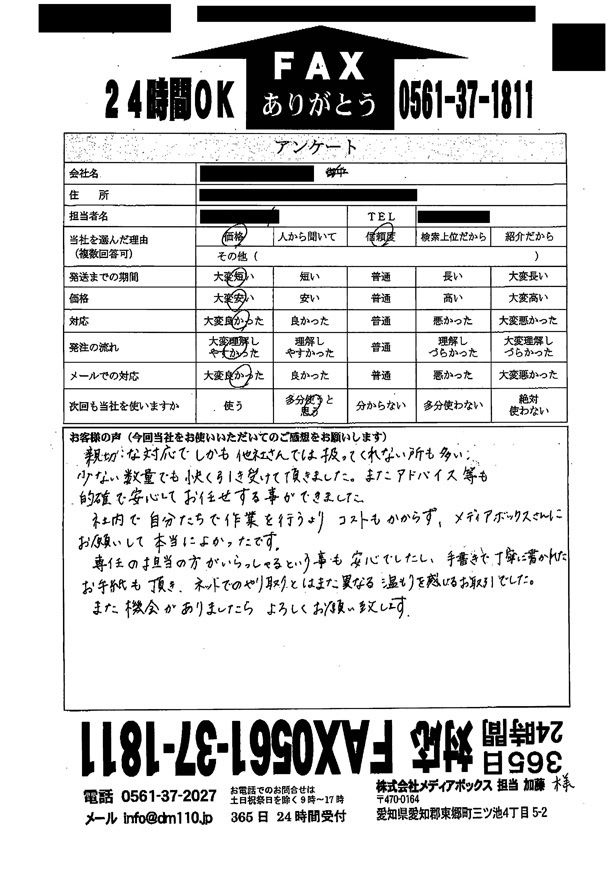 FAX
ありがとう
24時間OK
0561-37-1811
アンケート
会社名
住 所
担当者名 TEL
当社を選んだ理由
(複数回答可)
価格 人から聞いて 信頼度 検索上位だから 紹介だから
その他 ( )
発送までの期間 大変短い 短い 普通 長い 大変長い
価格 大変安い 安い 普通 高い 大変高い
対応 大変良かった 良かった 普通 悪かった 大変悪かった
発注の流れ 大変理解しやすかった 理解しやすかった 普通 理解しづらかった 大変理解しづらかった
メールでの対応 大変良かった 良かった 普通 悪かった 大変悪かった
次回も当社を使いますか 使う 多分使うと思う 分からない 多分使わない 絶対使わない
お客様の声(今回当社をお使いいただいてのご感想をお願いします)
親切な対応でしかも他社さんでは扱ってくれない所も多い
少ない数量でも快く引き受けて頂きました。またアドバイス等も
的確で安心してお任せする事ができました
社内で自分たちで作業を行うよりコストもかからず、メディアボックスさんに
お願いして本当によかったです。
専任の担当の方がいらっしゃるという事も安心でしたし、手書きで丁寧に書かれた
お手紙も頂き、ネットでのやり取りとはまた異なる温もりを感じるお取引でした。
また機会がありましたらよろしくお願い致します。
365日
24時間
対応 FAX0561-37-1811
電話 0561-37-2027
メール info@dm110.jp
お電話でのお問合せは
土日祝祭日を除く9時~17時
365日 24時間受付
株式会社メディアボックス 担当 加藤 様
〒470-0164
愛知県愛知郡東郷町三ツ池4丁目5-2